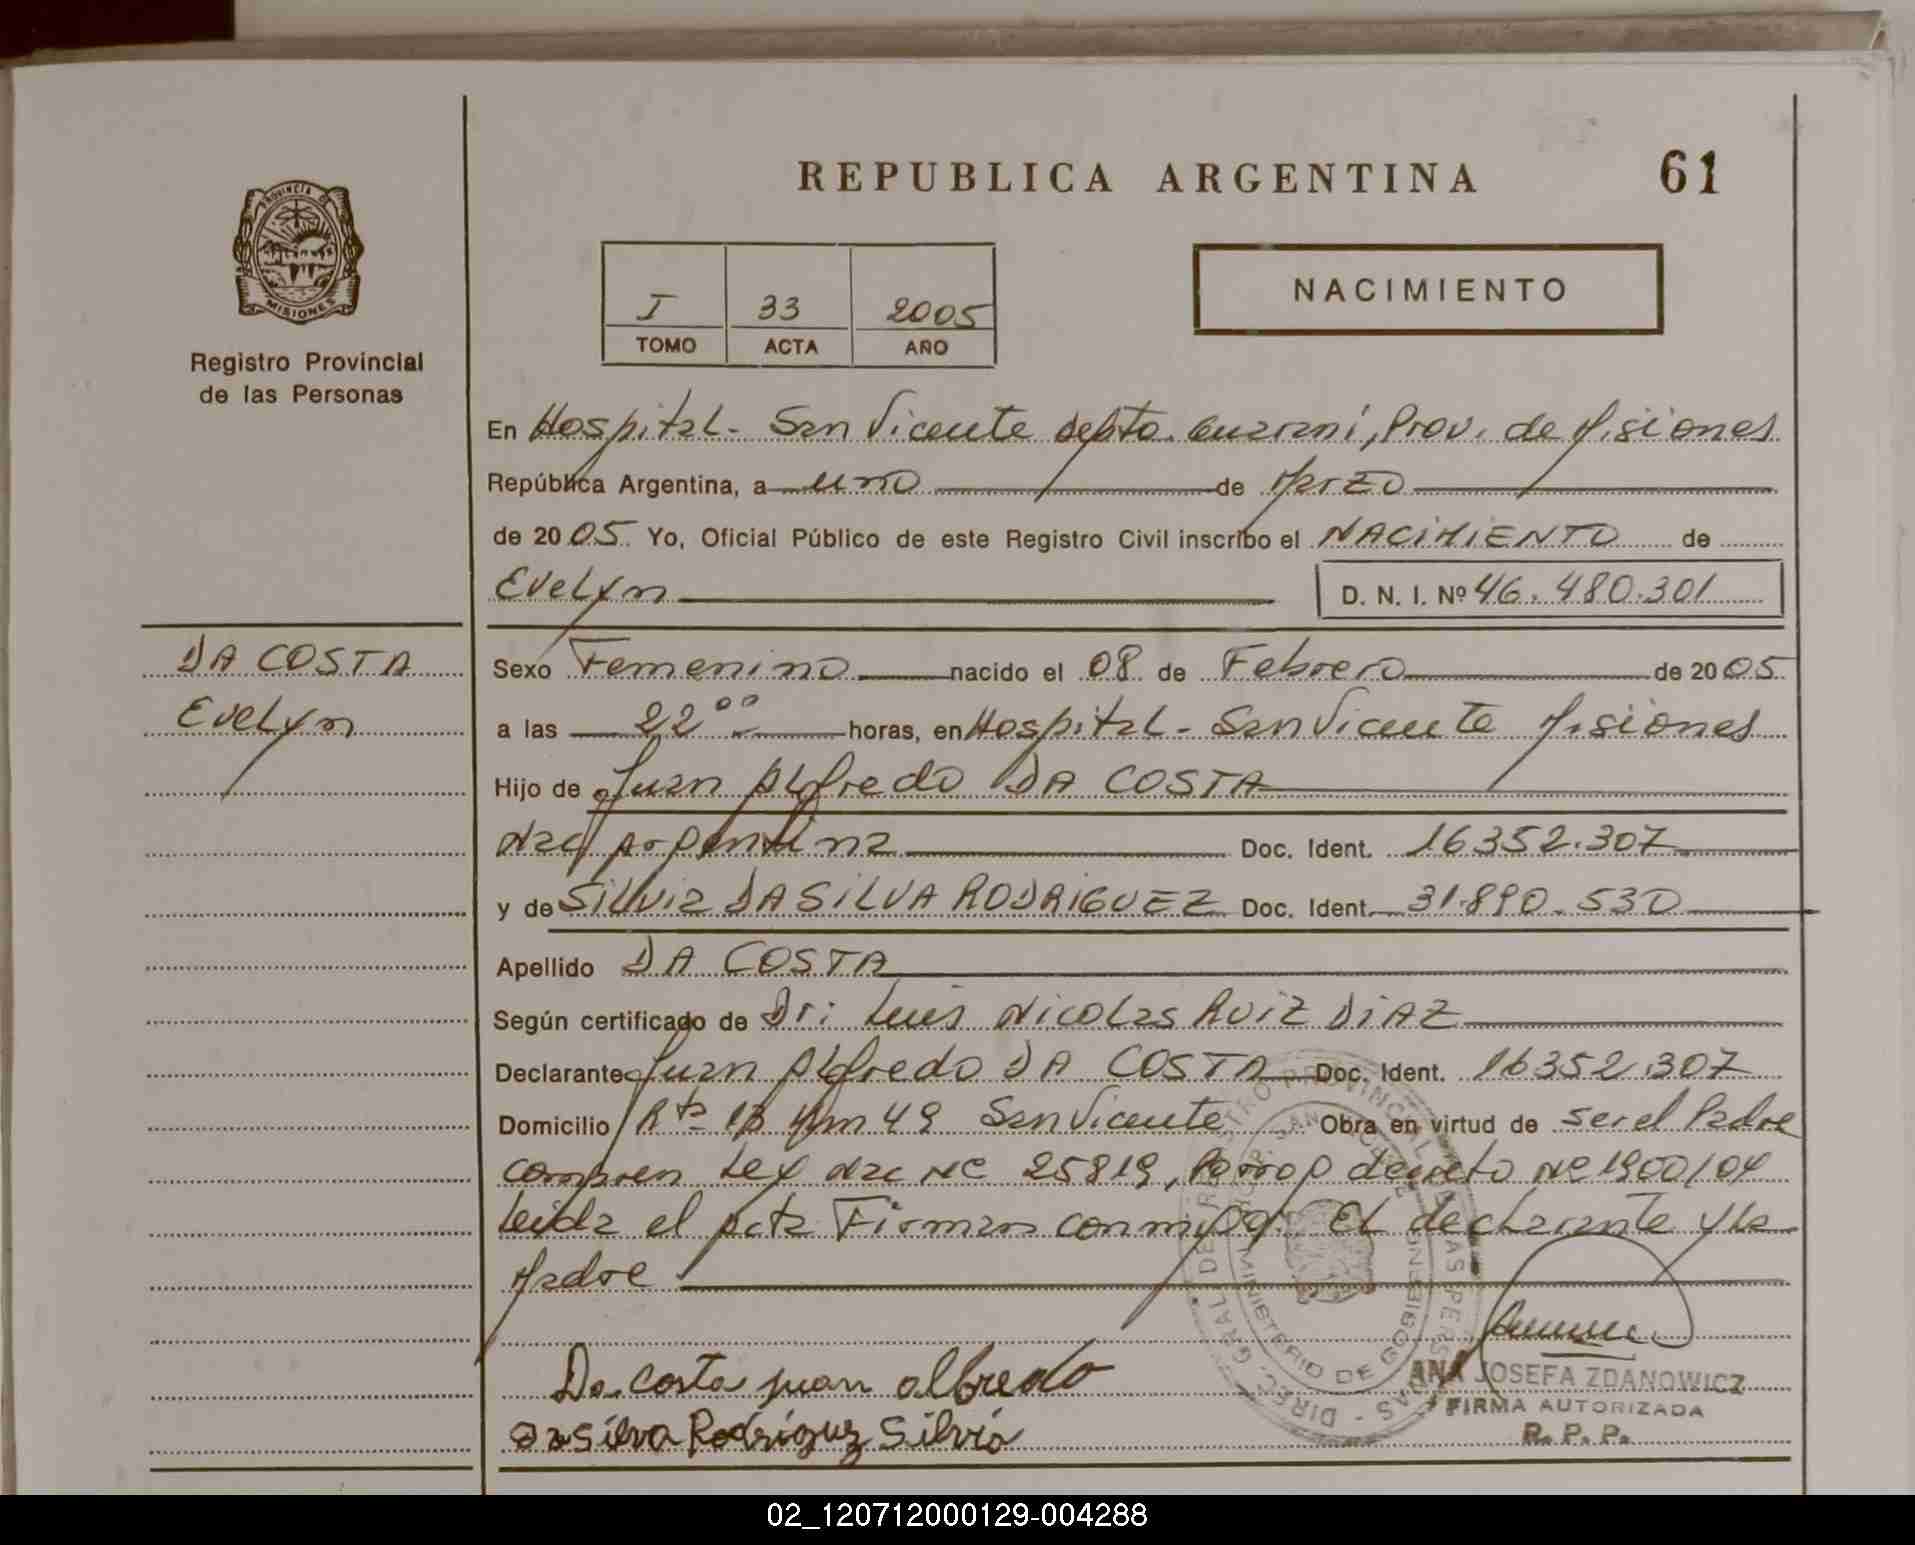 REPUBLICA ARGENTINA
61
PROVINCIA DE
MISIONES
Registro Provincial
de las Personas
I 33 2005
TOMO ACTA AÑO
NACIMIENTO
En Hospital - San Vicente depto. Guaraní, Prov. de Misiones
República Argentina, a uno de Marzo
de 2005 Yo, Oficial Público de este Registro Civil inscribo el NACIMIENTO de
Evelyn D. N. I. Nº 46.480.301
DA COSTA
Evelyn
Sexo Femenino nacido el 08 de Febrero de 2005
a las 22 00 horas, en Hospital - San Vicente Misiones
Hijo de Juan Alfredo DA COSTA
Nac Argentina Doc. Ident. 16352.307
y de Silvia DA SILVA RODRIGUEZ Doc. Ident. 31.890.530
Apellido DA COSTA
Según certificado de Dr: Luis Nicolas RUIZ DIAZ
Declarante Juan Alfredo DA COSTA Doc. Ident. 16352.307
Domicilio Rta 13 Km 49 San Vicente Obra en virtud de ser el Padre
Ley Nac Nº 25819, decreto Nº 1900/04
Leida el Acta Firman conmigo: El declarante y la
Madre
Da costa juan albredo
Dasilva Rodriguz Silvia
DIREC. GRAL DE REGISTRO PROVINCIAL DE LAS PERSONAS
MINISTERIO DE GOBIERNO
SAN VICENTE
MISIONES
ANA JOSEFA ZDANOWICZ
FIRMA AUTORIZADA
R. P. P.
02_120712000129-004288